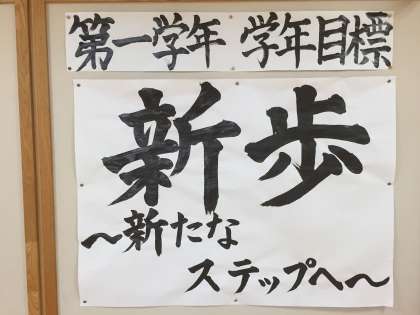 第一学年 学年目標
新歩
～新たな
ステップへ～